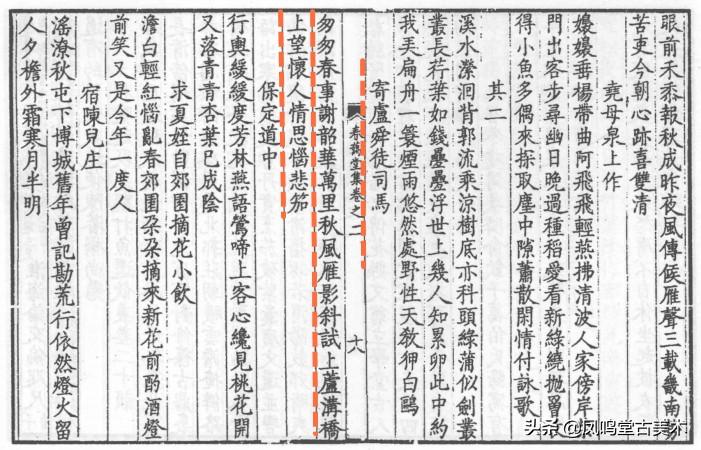 眼前禾黍報秋成昨夜風傳候雁聲三載畿南勞
苦吏今朝心跡喜雙清
堯母泉上作
嫋嫋垂楊帶曲阿飛飛輕燕拂清波人家傍岸
門出客步尋幽日晚過種稻愛看新綠繞抛罾
得小魚多偶來採取塵中隙蕭散閒情付詠歌
其二
溪水瀠洄背郭流乘涼樹底亦科頭綠蒲似劍叢
叢長荇葉如錢疊疊浮世上幾人知累卵此中約
我美扁舟一簑煙雨悠然處野性天教狎白鷗
寄盧舜徒司馬
春藹堂集卷之二
十八
匆匆春事謝韶華萬里秋風雁影斜試上蘆溝橋
上望懷人情思惱悲笳
保定道中
行輿緩緩度芳林燕語鶯啼上客心纔見桃花開
又落青青杏葉已成陰
求夏姪自郊園摘花小飲
澹白輕紅惱亂春郊園朶朶摘來新花前酌酒燈
前笑又是今年一度人
宿陳兒庄
滛潦秋屯下博城舊年曾記勘荒行依然燈火留
人夕檐外霜寒月半明
头条@凤鸣堂古美术